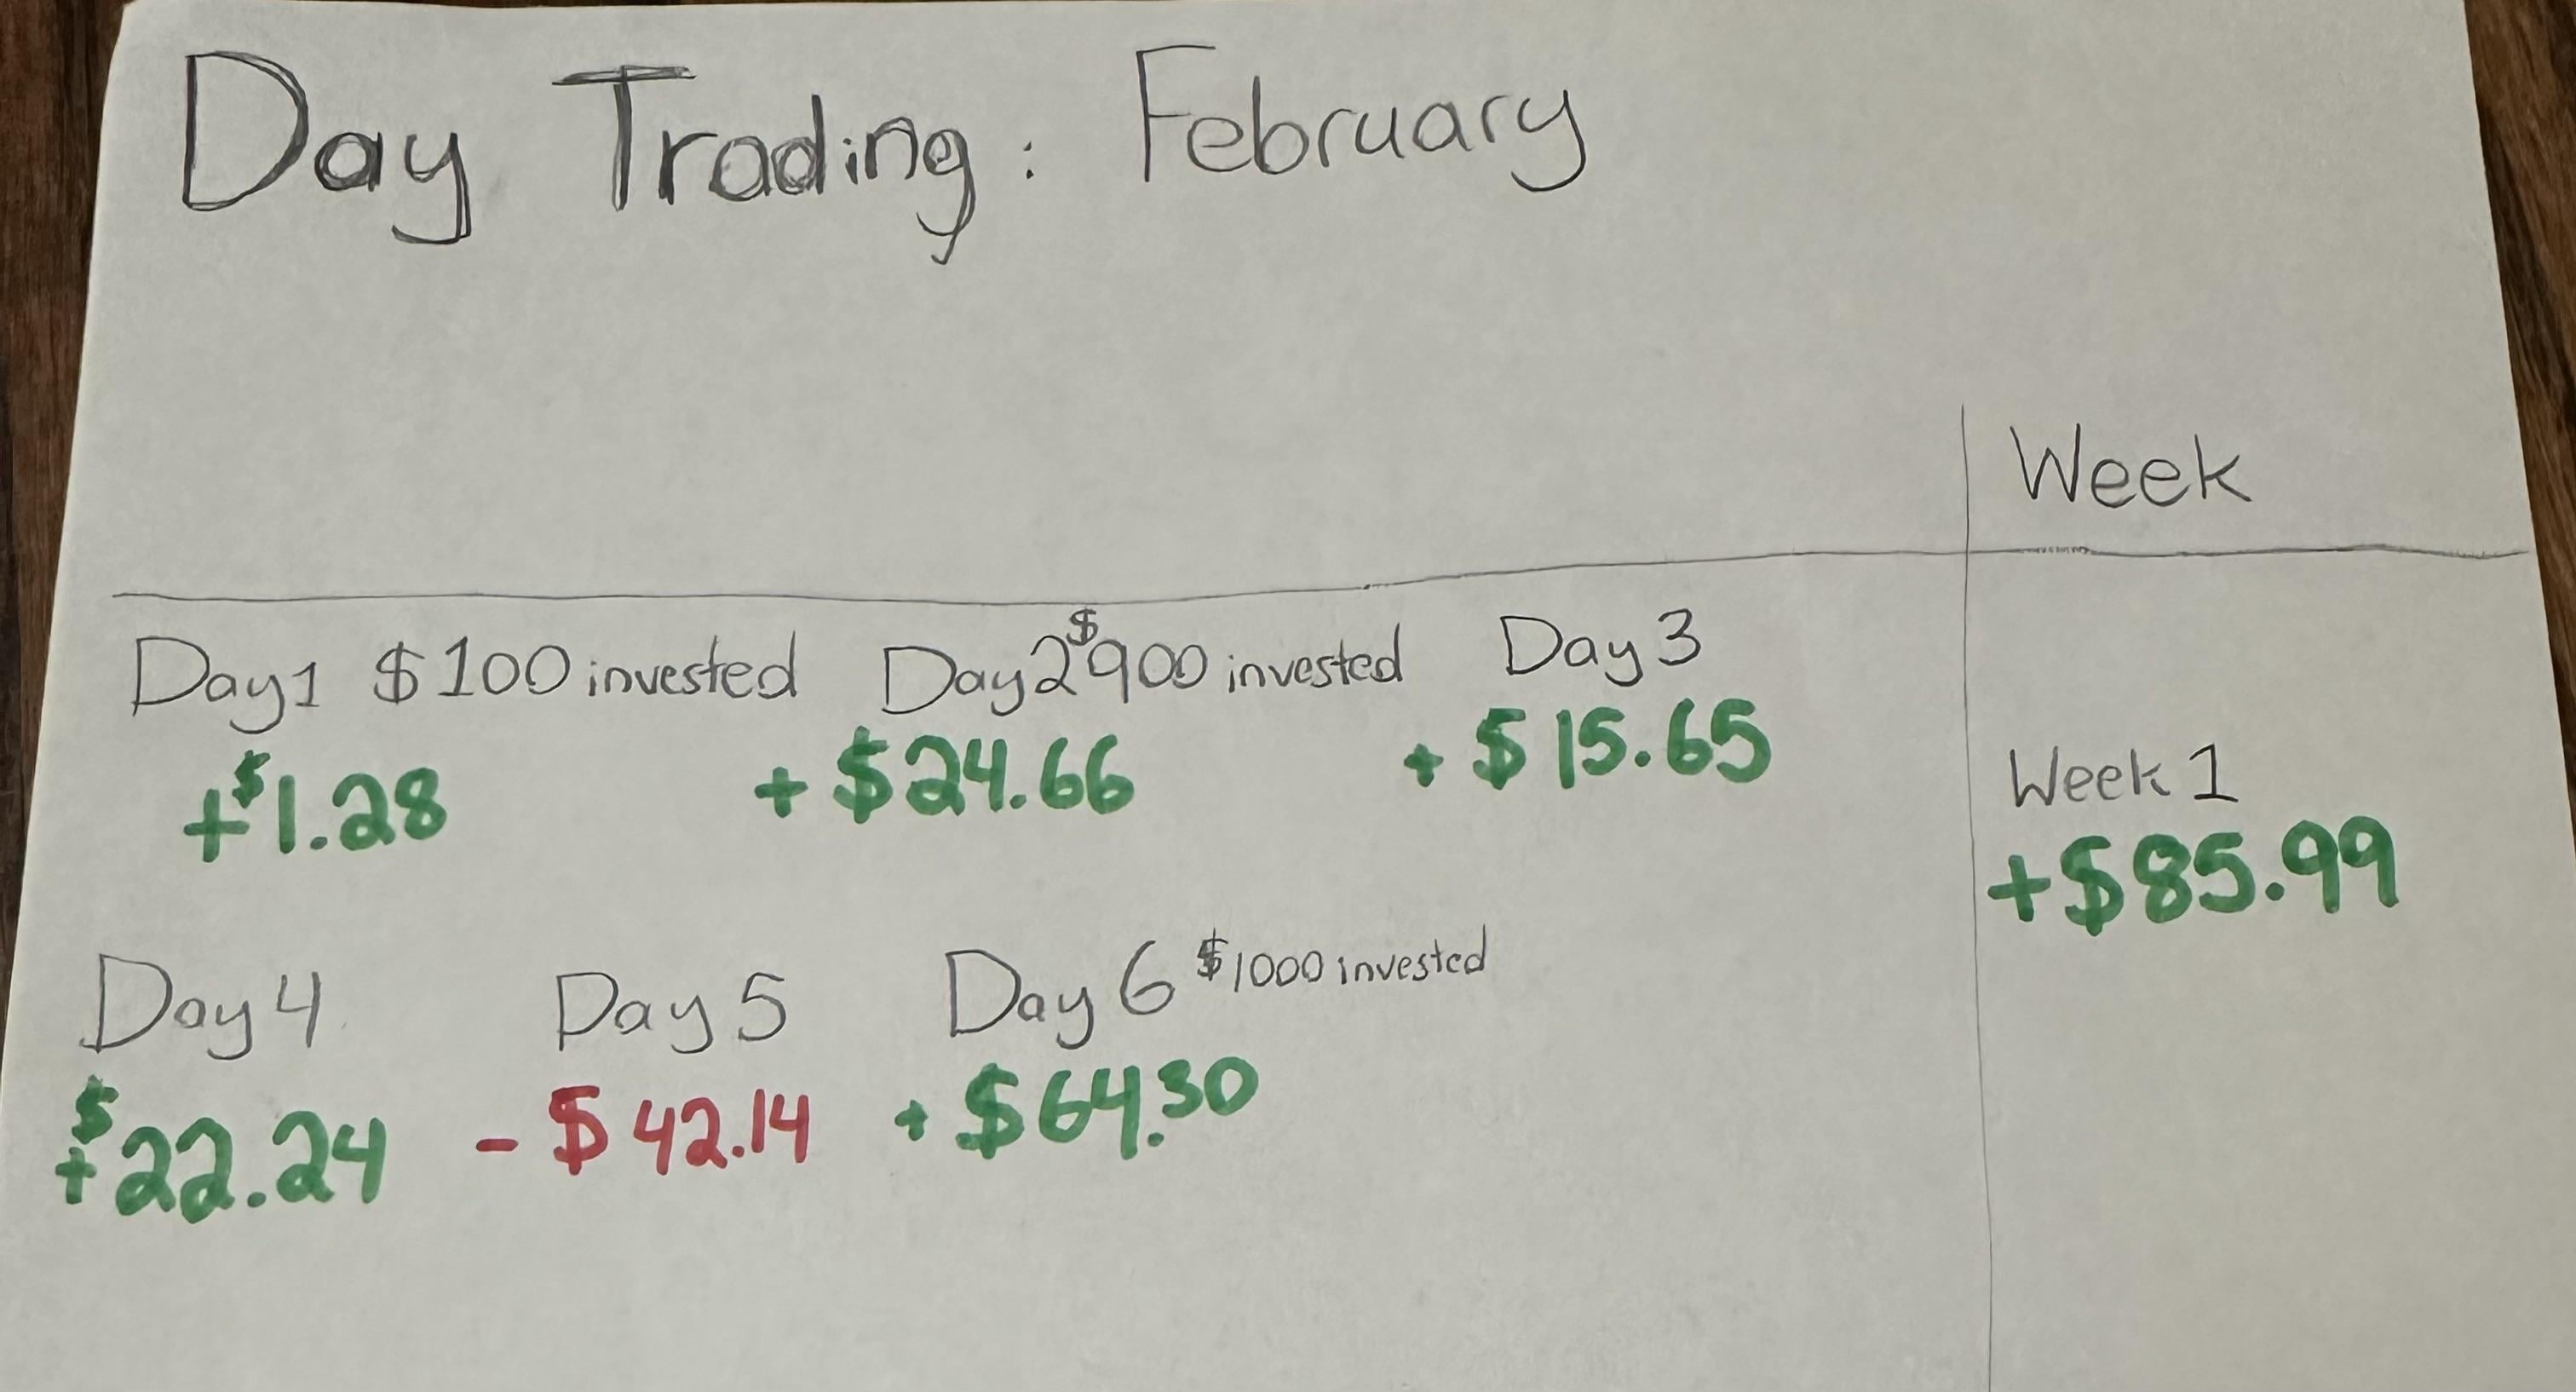 Day Trading: February
Week
Day 1 $100 invested Day 2 $900 invested Day 3
+$1.28 + $24.66 + $15.65
Week 1
+$85.99
Day 4 Day 5 Day 6 $1000 invested
+$22.24 - $42.14 + $64.30